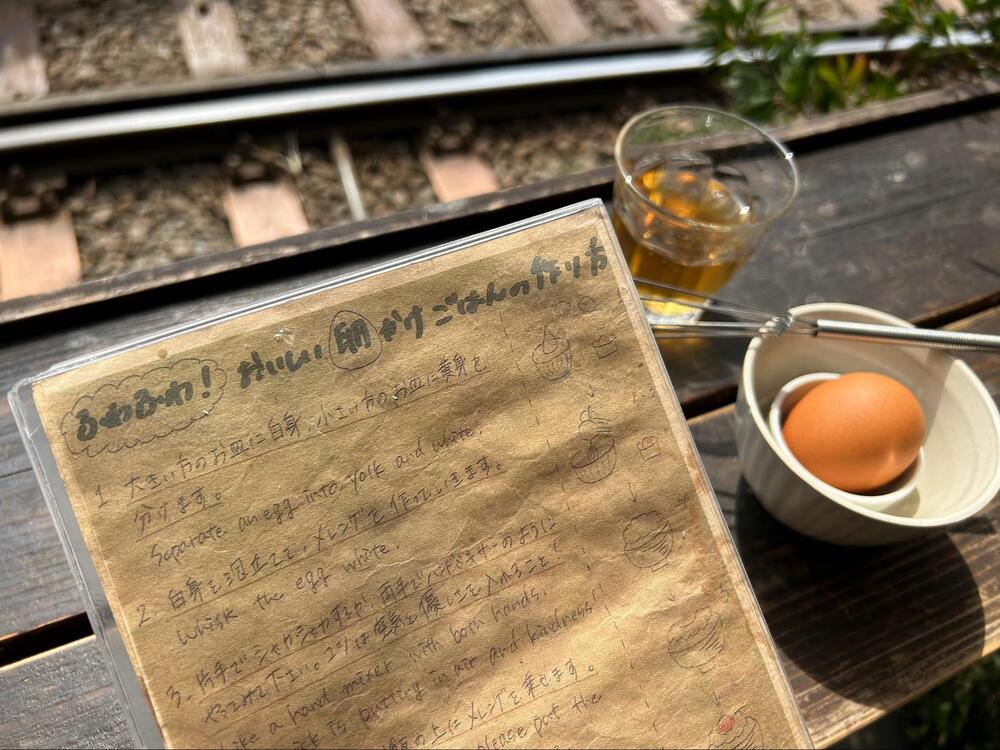 ふわふわ! おいしい卵かけごはんの作り方
1. 大きい方のお皿に白身、小さい方のお皿に黄身を
分けます。
Separate an egg into yolk and white.
2. 白身を泡立てて、メレンゲを作っていきます。
Whisk the egg white.
3. 片手でシャカシャカするか、両手でハンドミキサーのように
やってみて下さい。コツは空気と優しさを入れること!
a hand mixer with both hands.
is putting in air and kindness!
の上にメレンゲを乗せます。
please put the